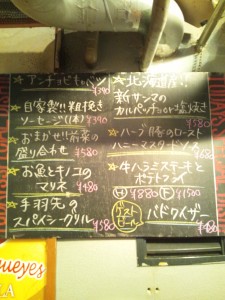 アンチョビキャベツ
¥390
★自家製!!粗挽き
ソーセージ(1本)¥390
★おまかせ!!前菜の
盛り合わせ ¥580
★お魚とキノコの
マリネ ¥480
★手羽先の
スパイシーグリル ¥580
★北海道産!!
新サンマの
カルパッチョor塩焼き
¥580
★ハーブ豚のロースト
ハニーマスタードソース
★牛ハラミステーキと
ポテトフライ
(H)¥880 (F)¥1500
ゲスト
ビール
バドワイザー
¥480
queyes
LA